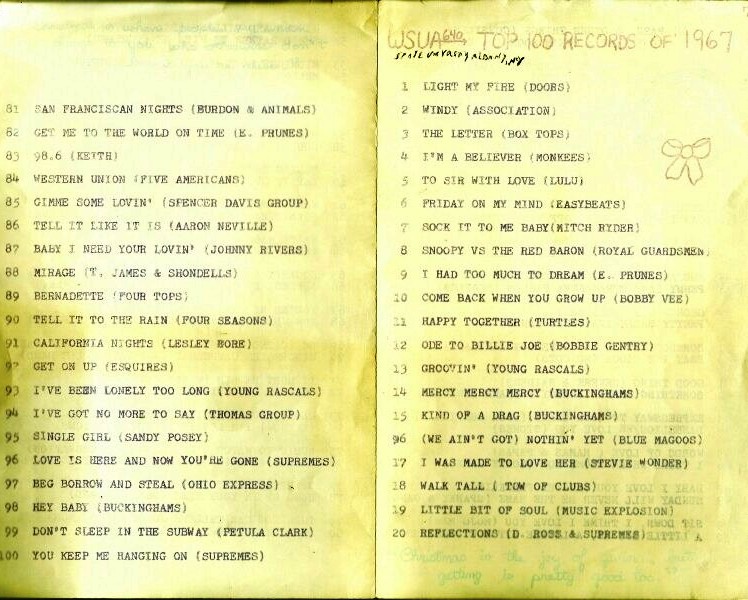 81 SAN FRANCISCAN NIGHTS (BURDON & ANIMALS)
82 GET ME TO THE WORLD ON TIME (E. PRUNES)
83 98.6 (KEITH)
84 WESTERN UNION (FIVE AMERICANS)
85 GIMME SOME LOVIN' (SPENCER DAVIS GROUP)
86 TELL IT LIKE IT IS (AARON NEVILLE)
87 BABY I NEED YOUR LOVIN' (JOHNNY RIVERS)
88 MIRAGE (T. JAMES & SHONDELLS)
89 BERNADETTE (FOUR TOPS)
90 TELL IT TO THE RAIN (FOUR SEASONS)
91 CALIFORNIA NIGHTS (LESLEY BORE)
92 GET ON UP (ESQUIRES)
93 I'VE BEEN LONELY TOO LONG (YOUNG RASCALS)
94 I'VE GOT NO MORE TO SAY (THOMAS GROUP)
95 SINGLE GIRL (SANDY POSEY)
96 LOVE IS HERE AND NOW YOU'RE GONE (SUPREMES)
97 BEG BORROW AND STEAL (OHIO EXPRESS)
98 HEY BABY (BUCKINGHAMS)
99 DON'T SLEEP IN THE SUBWAY (PETULA CLARK)
100 YOU KEEP ME HANGING ON (SUPREMES)
WSUA 640 TOP 100 RECORDS OF 1967
STATE UNIVERSITY ALBANY, NY
1 LIGHT MY FIRE (DOORS)
2 WINDY (ASSOCIATION)
3 THE LETTER (BOX TOPS)
4 I'M A BELIEVER (MONKEES)
5 TO SIR WITH LOVE (LULU)
6 FRIDAY ON MY MIND (EASYBEATS)
7 SOCK IT TO ME BABY(MITCH RYDER)
8 SNOOPY VS THE RED BARON (ROYAL GUARDSMEN)
9 I HAD TOO MUCH TO DREAM (E. PRUNES)
10 COME BACK WHEN YOU GROW UP (BOBBY VEE)
11 HAPPY TOGETHER (TURTLES)
12 ODE TO BILLIE JOE (BOBBIE GENTRY)
13 GROOVIN' (YOUNG RASCALS)
14 MERCY MERCY MERCY (BUCKINGHAMS)
15 KIND OF A DRAG (BUCKINGHAMS)
96 (WE AIN'T GOT) NOTHIN' YET (BLUE MAGOOS)
17 I WAS MADE TO LOVE HER (STEVIE WONDER)
18 WALK TALL ( TOW OF CLUBS)
19 LITTLE BIT OF SOUL (MUSIC EXPLOSION)
20 REFLECTIONS (D. ROSS & SUPREMES)
Christmas is the joy of giving, but
getting is pretty good too.